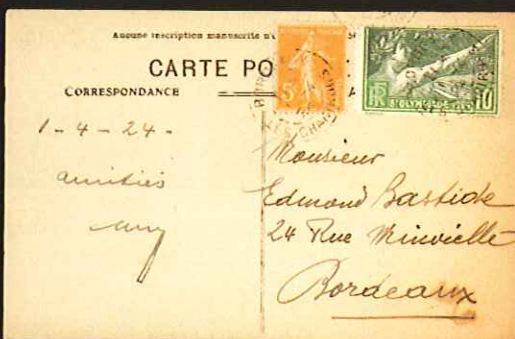 Aucune inscription manuscrite n'
CARTE PO
CORRESPONDANCE
1-4-24-
amitiés
5c
10
Monsieur
Edmond Bastide
24 Rue Minvielle
Bordeaux